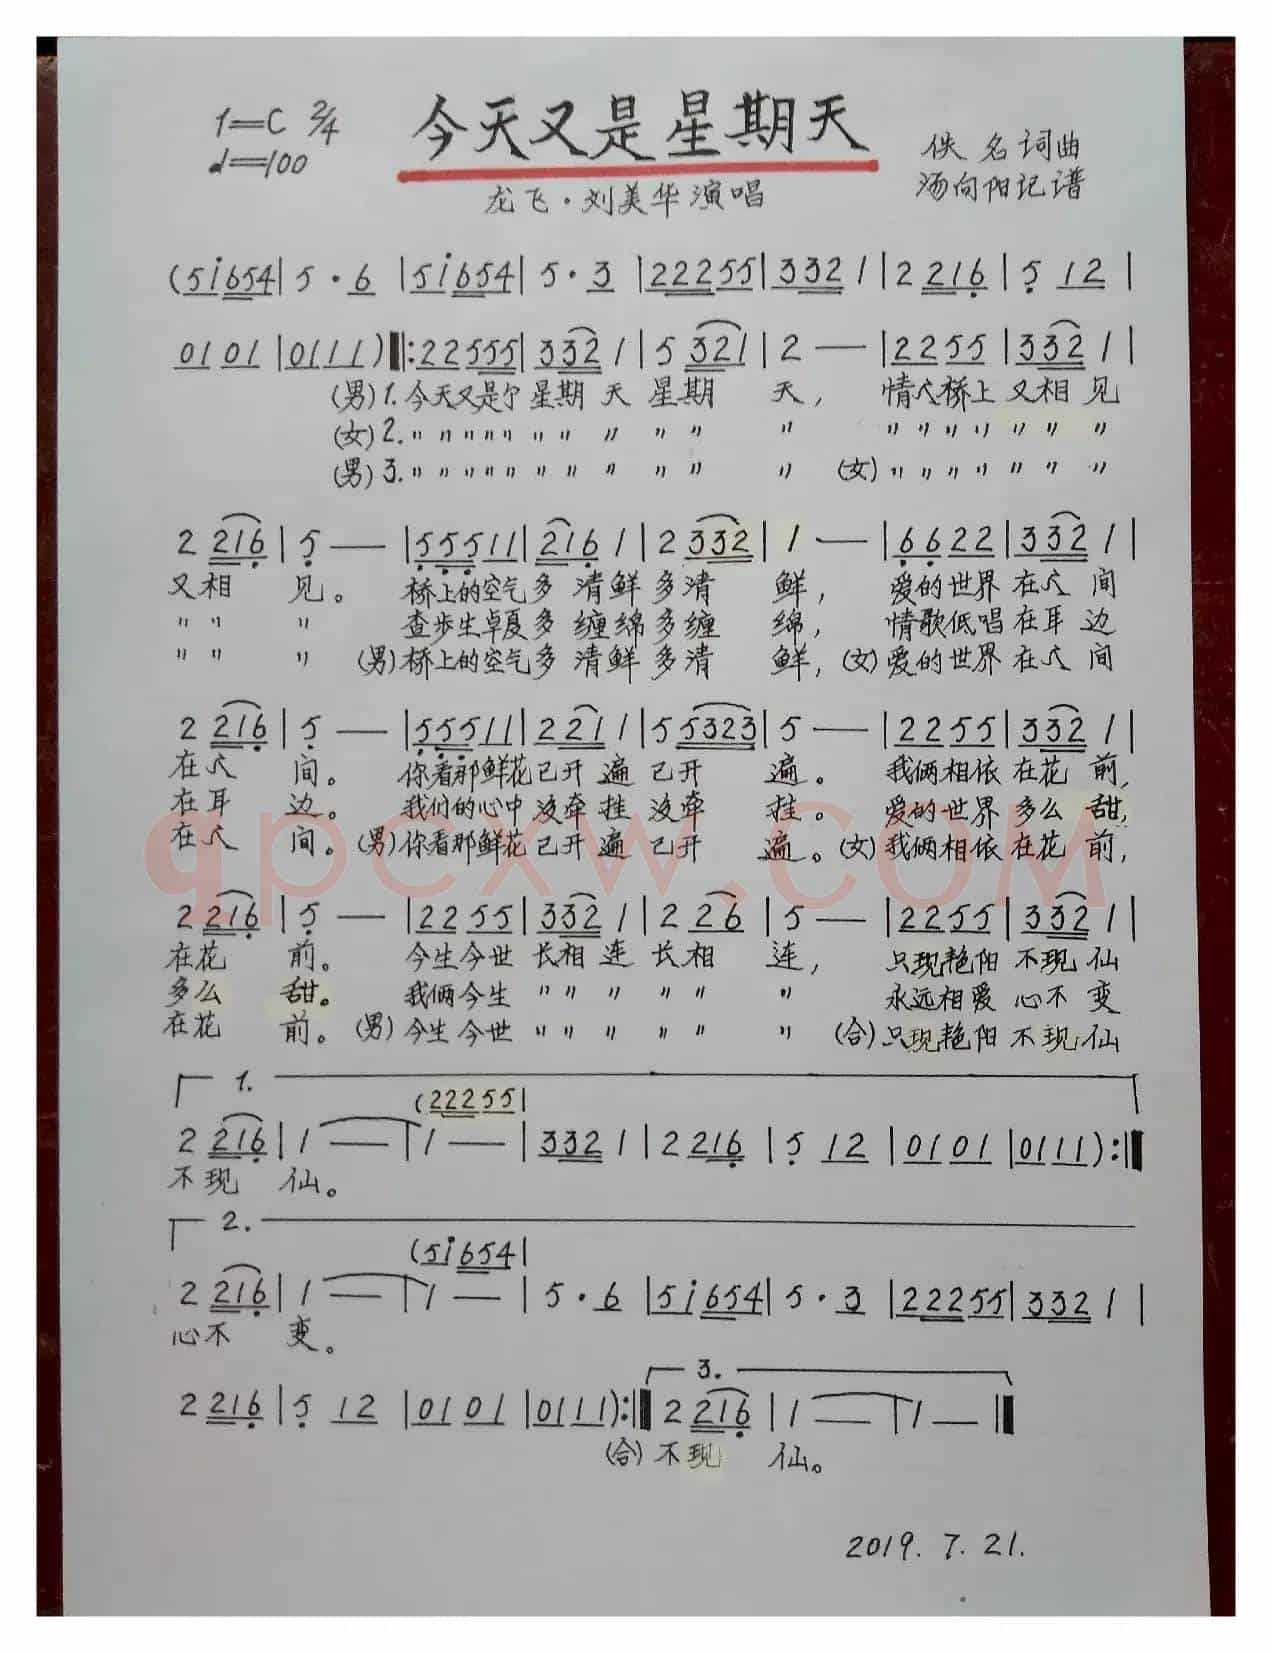 1=C 2/4 今天又是星期天 佚名词曲
♩=100 龙飞·刘美华演唱 汤向阳记谱
(5i654| 5·6 |5i654| 5·3 |22255|332 1 |2 216 | 5 12 |
01 01 |0111)‖:22555|332 1 |5 321 |2 — |2255 |332 1 |
(男)1.今天又是个星期天星期天，情人桥上又相见
(女)2.〃〃〃〃〃〃〃〃〃〃〃 〃〃〃〃〃〃〃
(男)3.〃〃〃〃〃〃〃〃〃〃〃 (女)〃〃〃〃〃〃〃
2 216 |5 — |55511|216 1 |2 332 |1 — |6622 |332 1 |
又相见。桥上的空气多清鲜多清鲜，爱的世界在人间
〃〃〃 多缠绵多缠绵，情歌低唱在耳边
〃〃〃 (男)桥上的空气多清鲜多清鲜，(女)爱的世界在人间
2 216 |5 — |55511|221 1 |5 5323 |5 — |2255 |332 1 |
在人间。你看那鲜花已开遍已开遍。我俩相依在花前，
在耳边。我们的心中没牵挂没牵挂。爱的世界多么甜，
在人间。(男)你看那鲜花已开遍已开遍。(女)我俩相依在花前，
2 216 |5 — |22 55 |332 1 |2 26 |5 — |2255 |332 1 |
在花前。今生今世长相连长相连，只现艳阳不现仙
多么甜。我俩今生〃〃〃〃〃〃 永远相爱心不变
在花前。(男)今生今世〃〃〃〃〃〃 (合)只现艳阳不现仙
1.
(22255|
2 216 |1 — |1 — |332 1 |2 216 |5 12 |01 01 |0111):‖
不现仙。
2.
(5i654|
2 216 |1 — |1 — |5·6 |5i654|5·3 |22255|332 1 |
心不变。
3.
2 216 |5 12 |01 01 |0111):‖2 216 |1 — |1 — ‖
(合)不现仙。
2019.7.21.
qpcxw.com